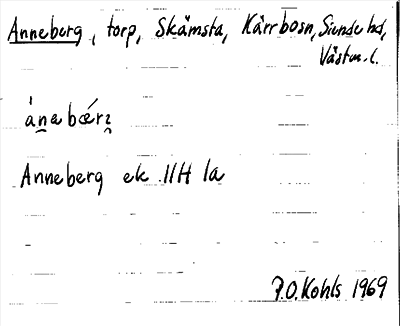 Anneberg, torp, Skämsta, Kärrbosn, Siende hd,
Västm. l.
ánabǽrz
Anneberg ek 11H 1a
P.O. Kohls 1969